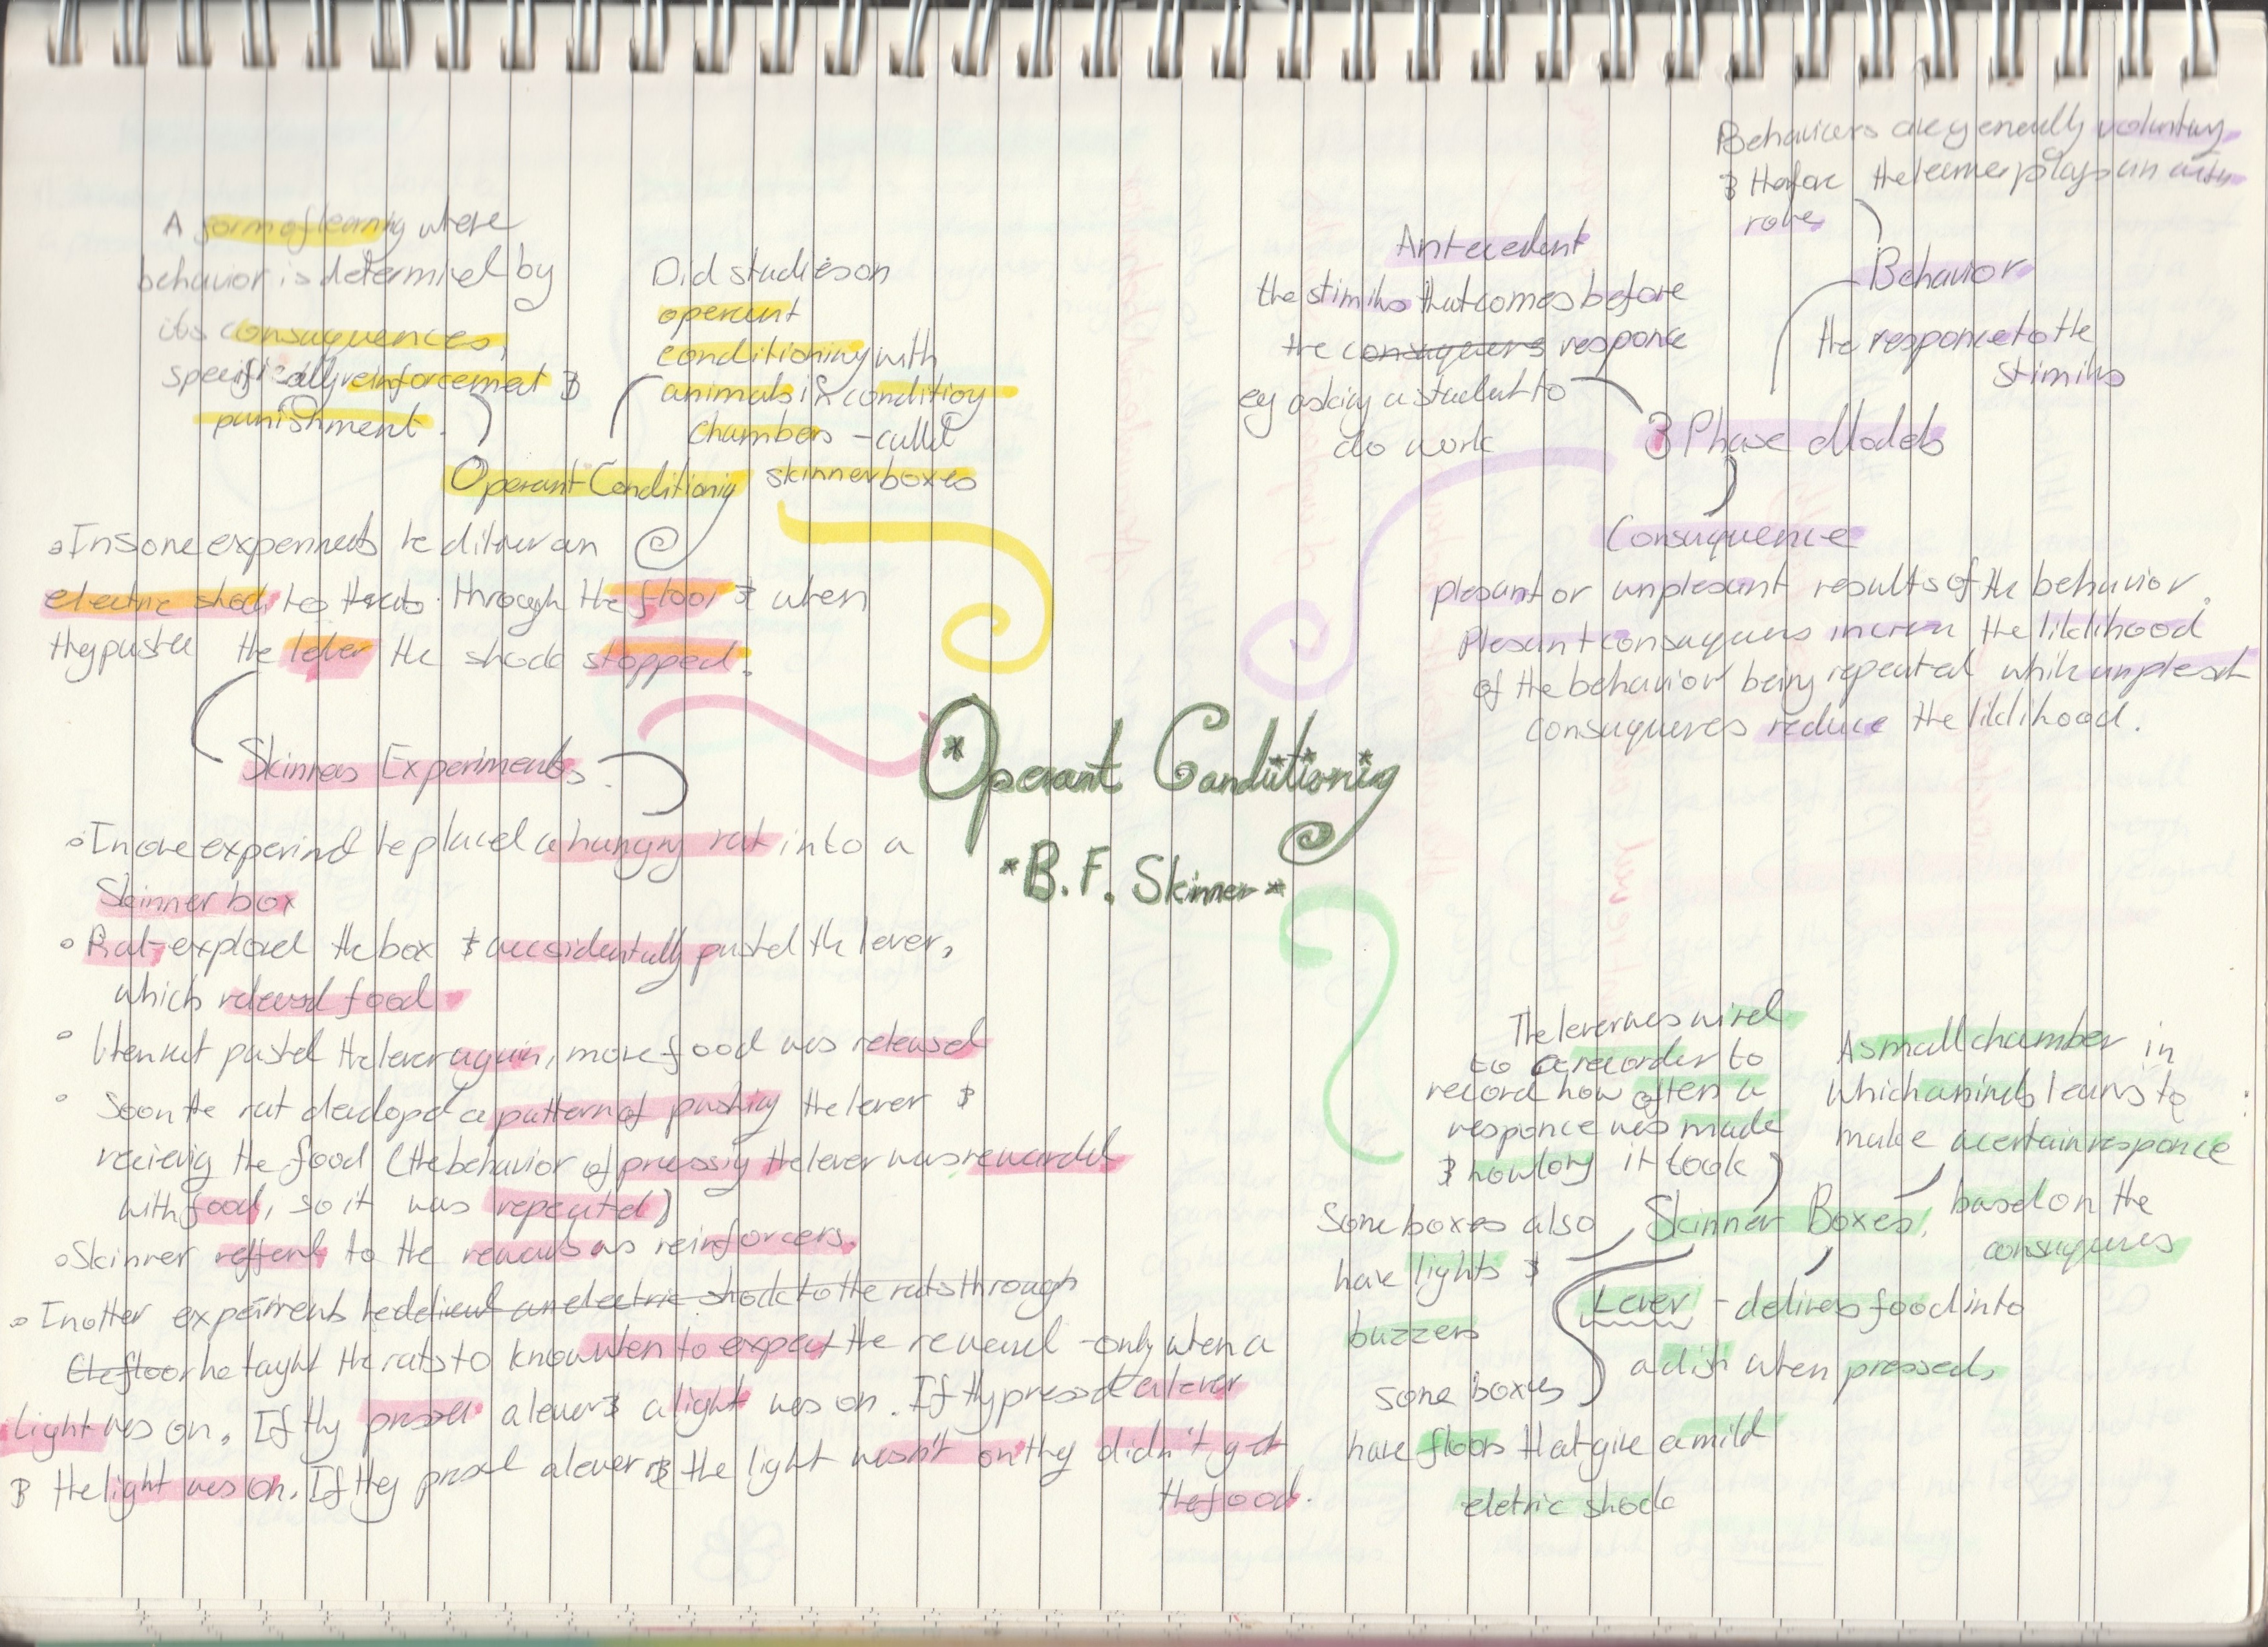 A form of learning where
behavior is determined by
its consuquences,
specifically reinforcement &
punishment.
Did studies on
operant
conditioning with
animals in conditioning
chambers - called
skinner boxes
Operant Conditioning
• In some experiments he deliver an
electric shock to the rats through the floor & when
they pushed the lever the shock stopped.
Skinners Experiments
• In one experiment he placed a hungry rat into a
Skinner box
• Rat explored the box & accsidentally pushed the lever,
which released food
• When rat pushed the lever again, more food was released
• Soon the rat developed a pattern of pushing the lever &
recieving the food (the behavior of pressing the lever was rewarded
with food, so it was repeated)
• Skinner reffered to the rewards as reinforcers.
• In other experiments he delivered an electric shock to the rats through
the floor he taught the rats to know when to expect the reward - only when a
light was on. If they pressed a lever & a light was on. If they pressed a lever
& the light was on. If they pressed a lever & the light wasn't on they didn't get
the food.
Operant Conditioning
*B.F. Skinner*
Behaviours are generally voluntary
& therfore the learner plays an active
role
Antecedent
the stimilus that comes before
the consuquens responce
eg asking a student to
do work
Behavior
the responce to the
stimilus
3 Phase Models
Consuquence
plesant or unplesant results of the behavior.
Plesant consuquens increase the liklihood
of the behavior being repeated while unplesant
consuquences reduce the liklihood.
The lever was wired
to a recorder to
record how often a
responce was made
& how long it took
A small chamber in
which animals learns to
make a certain responce
based on the
consuquences
Skinner Boxes
Some boxes also
have lights &
buzzers
Lever - delivers food into
a dish when pressed
some boxes
have floors that give a mild
eletric shock